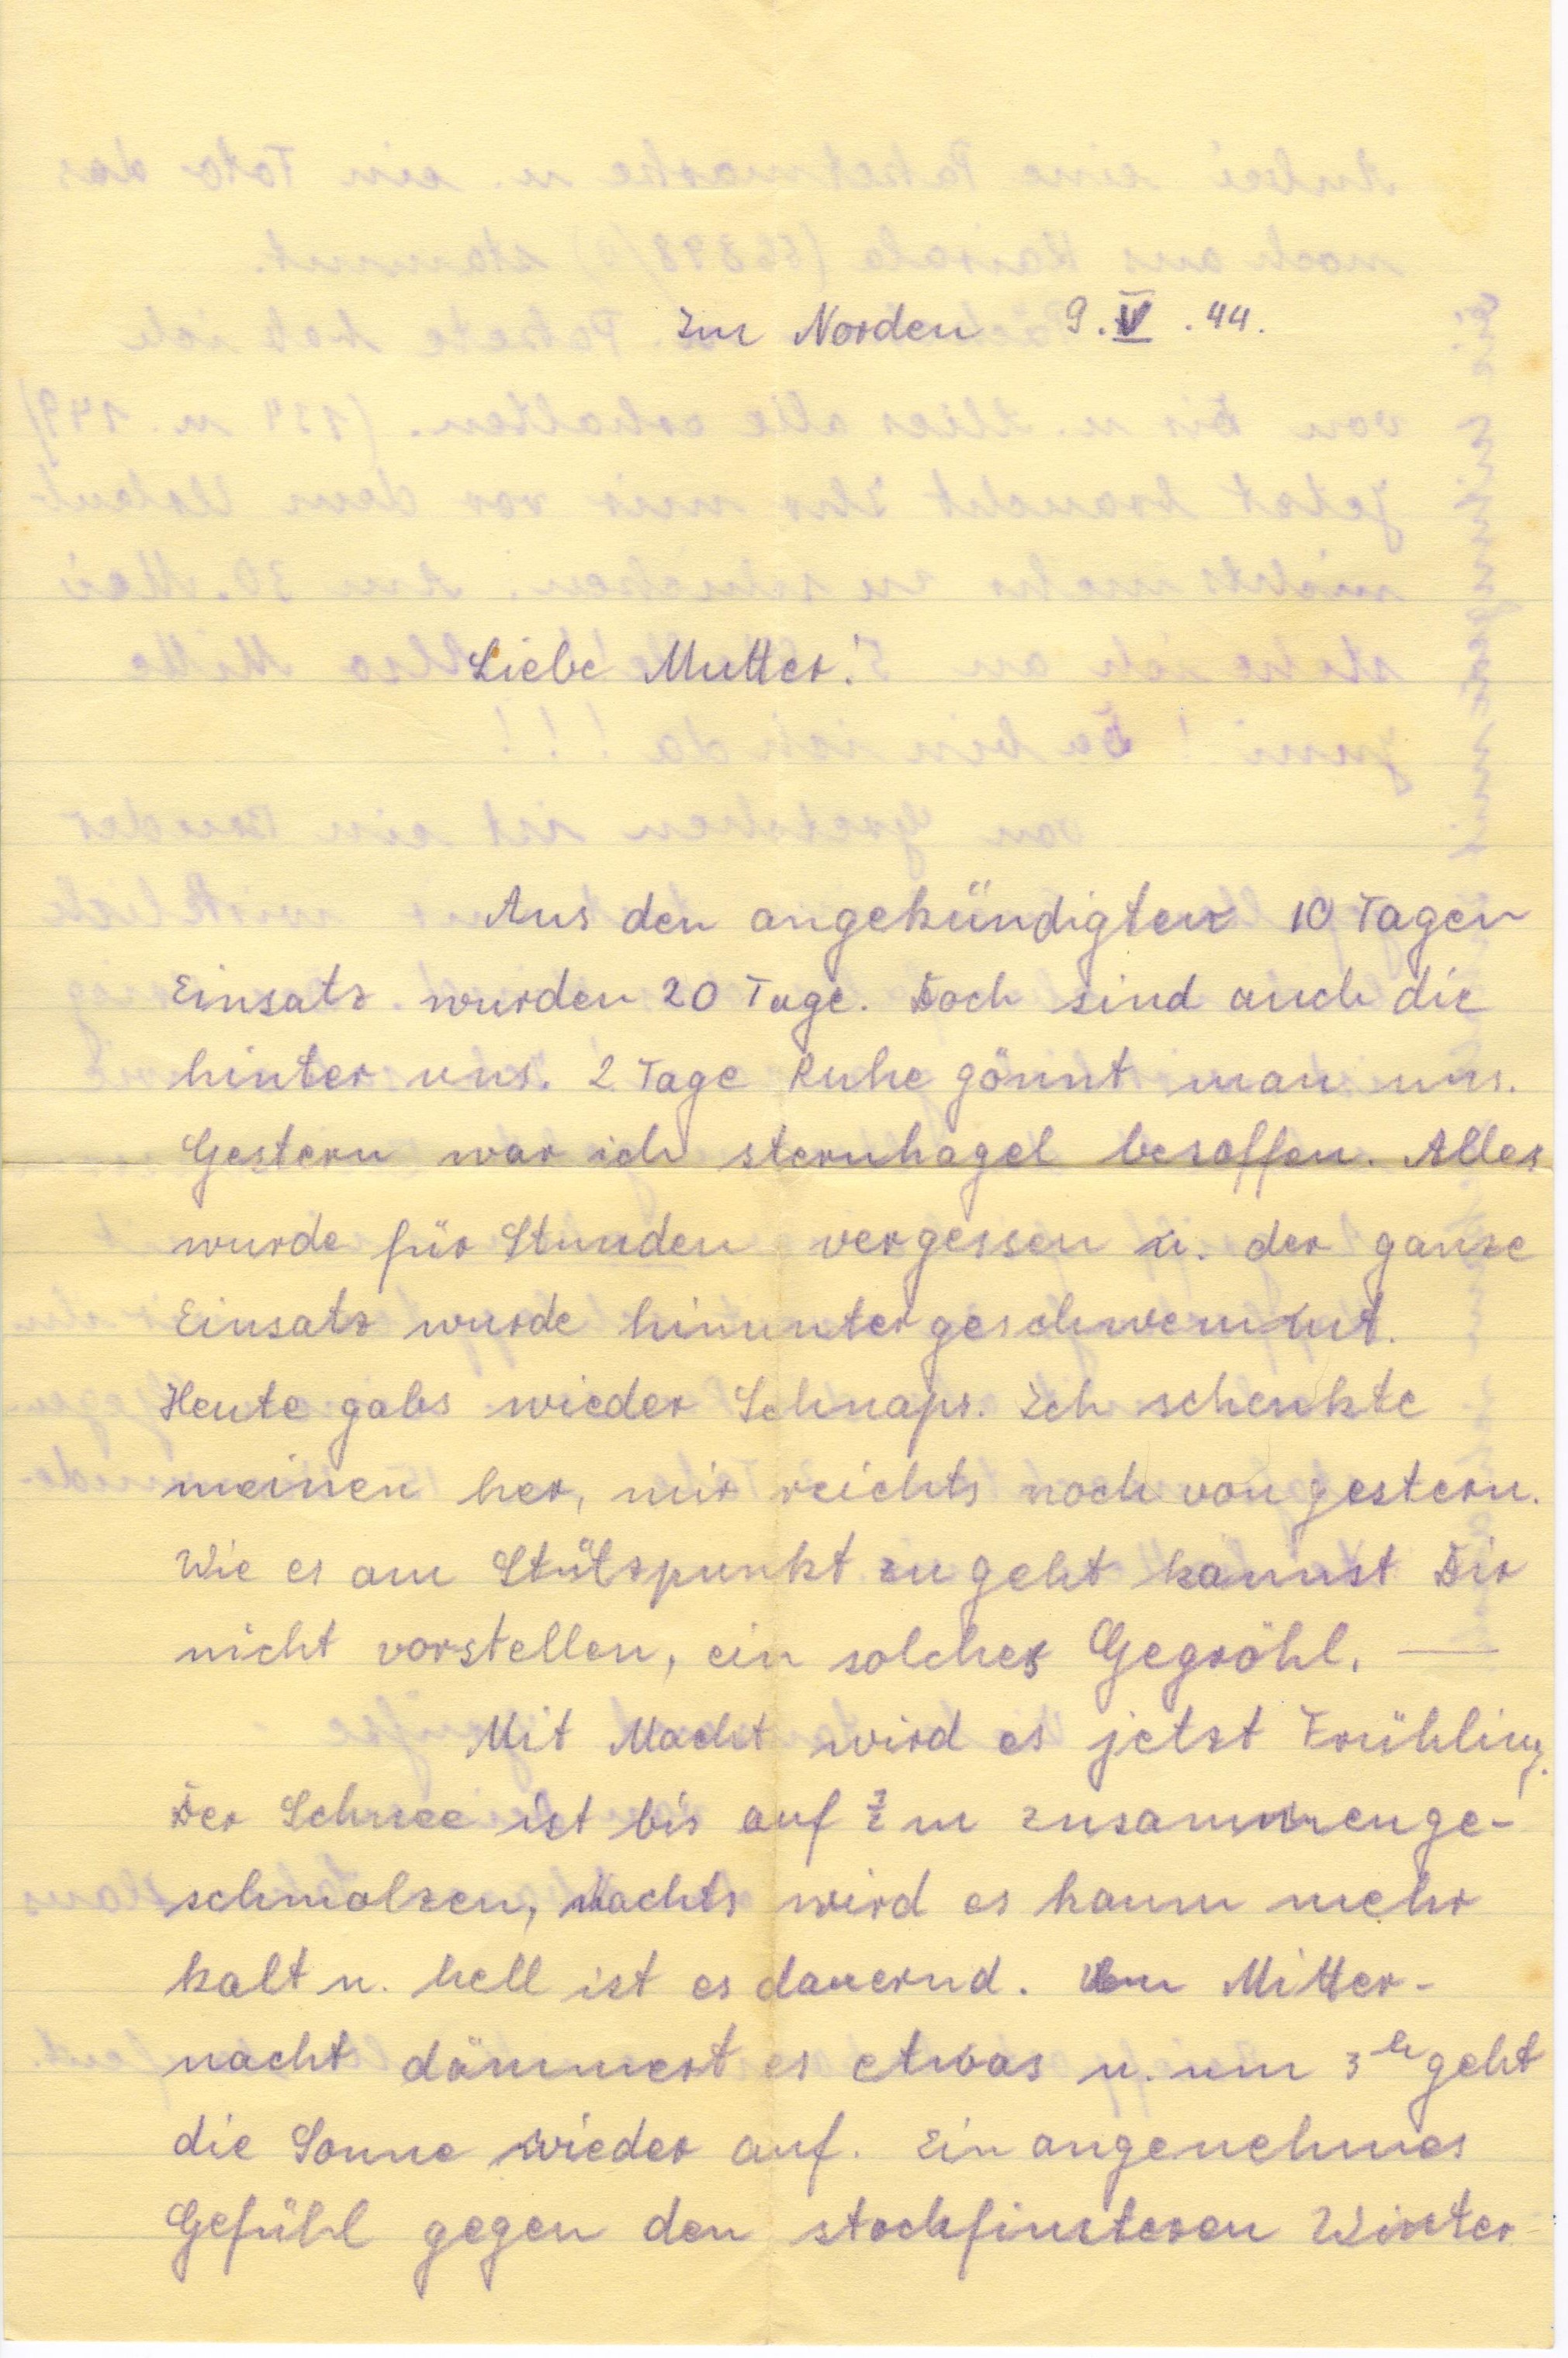 Im Norden 9. V. 44.
Liebe Mutter!
Aus den angekündigten 10 Tagen
Einsatz wurden 20 Tage. Doch sind auch die
hinter uns. 2 Tage Ruhe gönnt man uns.
Gestern war ich sternhagel besoffen. Alles
wurde für Stunden vergessen u. der ganze
Einsatz wurde hinuntergeschwemmt.
Heute gabs wieder Schnaps. Ich schenkte
meinen her, mir reichts noch von gestern.
Wie es am Stützpunkt zugeht kannst Dir
nicht vorstellen, ein solches Gegröhl. —
Mit Macht wird es jetzt Frühling.
Der Schnee ist bis auf m zusammenge-
schmolzen, nachts wird es kaum mehr
kalt u. hell ist es dauernd. Um Mitter-
nacht dämmert es etwas u. um 3 h geht
die Sonne wieder auf. Ein angenehmes
Gefühl gegen den stockfinsteren Winter